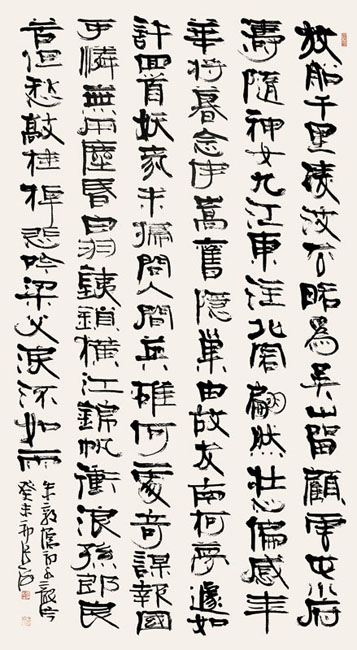 放船千里凌波去略為吳山留顧雲屯水府
濤隨神女九江東注北客翩然壯心偏感年
華將暮念伊嵩舊隱巢由故友南柯夢遽如
許回首妖氛未掃問人間英雄何處奇謀報國
可憐無用塵昏白羽鐵鎖橫江錦帆衝浪孫郎良
苦但愁敲桂棹悲吟梁父淚流如雨
朱敦儒詞水龍吟
癸未